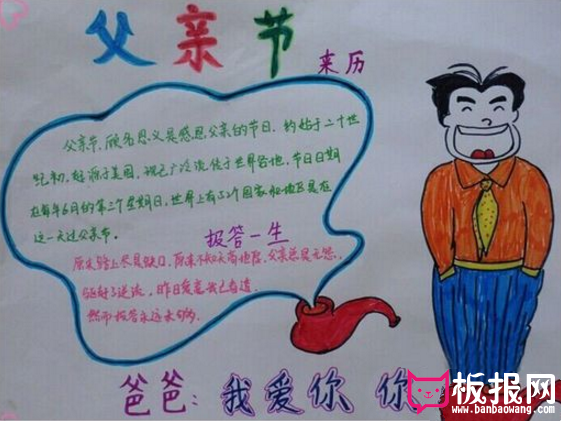 父亲节
来历
父亲节,顾名思义是感恩父亲的节日,约始于二十世
纪初,起源于美国,现已广泛流传于世界各地,节日日期
在每年6月的第三个星期日,世界上有52个国家和地区是在
这一天过父亲节。
报答一生
原来路上尽是缺口,原来不知天高地厚,父亲总是无怨,
昨日爱意我已看清
然而报答永远未够
爸爸:我爱你 你
板报网
www.banbaowang.com